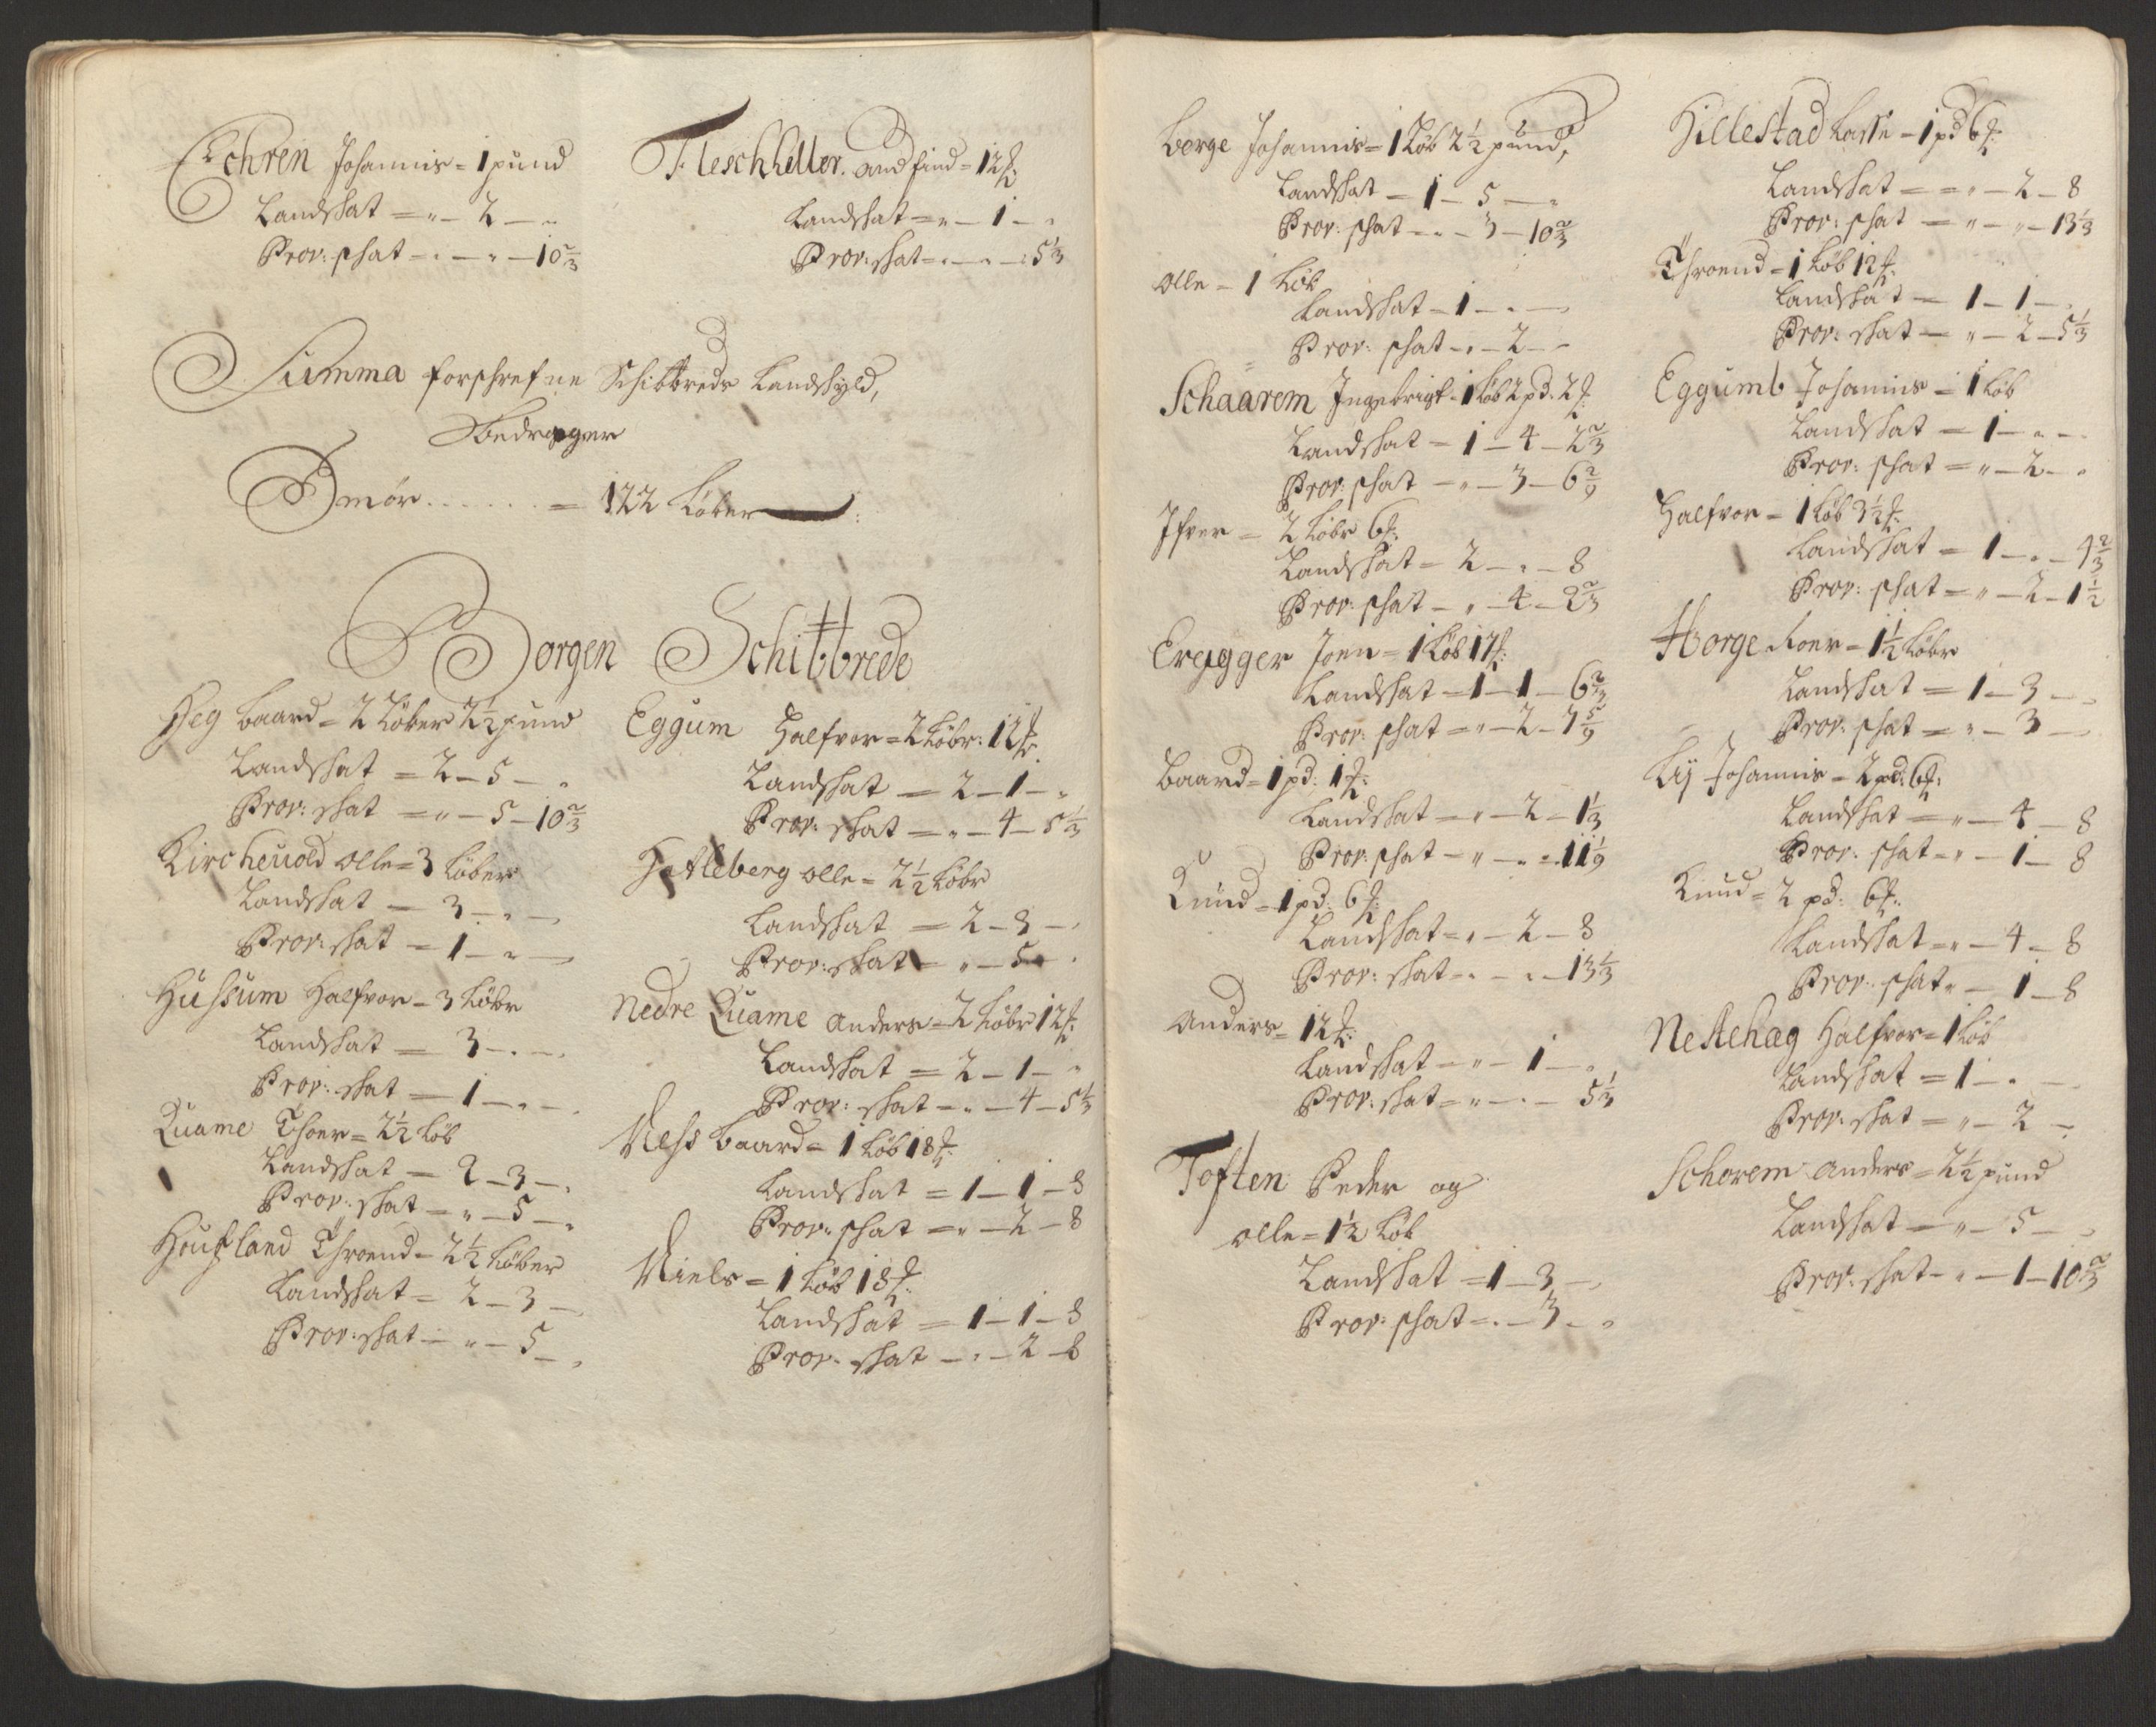 Echren Johannis = 1 pund
Landskat = " - 2 - "
Prov: skat - " - " - 10 2/3
Fleschheller. Andfind = 12 ℔:
Landskat = " - 1 - "
Prov: skat = " - " - 5 1/3
Summa forschrefne Schibbreds Landskyld,
Bedrager
Smør . . . . . . = 122 Løber
Borgen Schibbrede
Heg Baard = 2 Løber 2 1/2 pund
Landskat = 2 - 5 - "
Prov: skat = " - 5 - 10 2/3
Kircheuold Olle = 3 Løber
Landskat - 3 - " -
Prov: skat - 1 - " -
Hussum Halfvor - 3 Løbr
Landskat - 3 - " -
Prov: skat - 1 - " -
Quame Thoer = 2 1/2 Løb
Landskat - 2 - 3 - "
Prov: skat - " - 5 - "
Houfland Throend - 2 1/2 Løber
Landskat = 2 - 3 -
Prov: skat - " - 5 - "
Eggum Halfvor = 2 Løbr: 12 ℔:
Landskat - 2 - 1 - "
Prov: skat - " - 4 - 5 1/3
Hatleberg Olle = 2 1/2 Løbr
Landskat - 2 - 3 - "
Prov: skat = " - 5 - "
Nedre Quame Anders = 2 Løbr 12 ℔:
Landskat = 2 - 1 - "
Prov: skat - " - 4 - 5 1/3
Ness Baard = 1 Løb 18 ℔:
Landskat = 1 - 1 - 8
Prov: skat = " - 2 - 8
Niels = 1 Løb 18 ℔:
Landskat - 1 - 1 - 8
Prov: skat - " - 2 - 8
Berge Johannis = 1 Løb 2 1/2 pund,
Landskat - 1 - 5 - "
Prov: skat - " - 3 - 10 2/3
Olle - 1 Løb
Landskat - 1 - " -
Prov: skat - " - 2 -
Schaarem Ingebrigt = 1 Løb 2 pd: 2 ℔:
Landskat - 1 - 4 - 2 2/3
Prov: skat - " - 3 - 6 2/9
Ifver - 2 Løbr 6 ℔:
Landskat - 2 - " - 8
Prov: skat - " - 4 - 2 2/3
Eregger Joen = 1 Løb 17 ℔:
Landskat - 1 - 1 - 6 2/3
Prov: skat = " - 2 - 7 5/9
Baard - 1 pd: 1 ℔:
Landskat - " - 2 - 1 1/3
Prov: skat - " - " - 11 1/9
Knud - 1 pd: 6 ℔:
Landskat - " - 2 - 8
Prov: skat - " - " - 13 1/3
Anders - 12 ℔:
Landskat - " - 1 - "
Prov: skat = " - " - 5 1/3
Toften Peder og
Olle = 1 1/2 Løb
Landskat = 1 - 3 -
Prov: skat - " - 3 - "
Hillestad Lasse - 1 pd 6 ℔:
Landskat - " - 2 - 8
Prov: skat - " - " - 13 1/3
Throend - 1 Løb 12 ℔:
Landskat - 1 - 1 - "
Prov: skat - " - 2 - 5 1/3
Eggumb Johannis = 1 Løb
Landskat = 1 - " -
Prov: skat = " - 2 - "
Halfvor - 1 Løb 3 1/2 ℔:
Landskat = 1 - " - 4 2/3
Prov: skat = " - 2 - 1 1/2
Horge Roer - 1 1/2 Løbr
Landskat = 1 - 3 -
Prov: skat = " - 3 -
Lij Johannis - 2 pd: 6 ℔:
Landskat = " - 4 - 8
Prov: skat - " - 1 - 8
Knud = 2 pd: 6 ℔:
Landskat = " - 4 - 8
Prov: skat " - 1 - 8
Nestehag Halfvor = 1 Løb
Landskat = 1 - " -
Prov: skat = " - 2 -
Schorem Anders = 2 1/2 pund
Landskat - " - 5 -
Prov: skat - " - 1 - 10 2/3